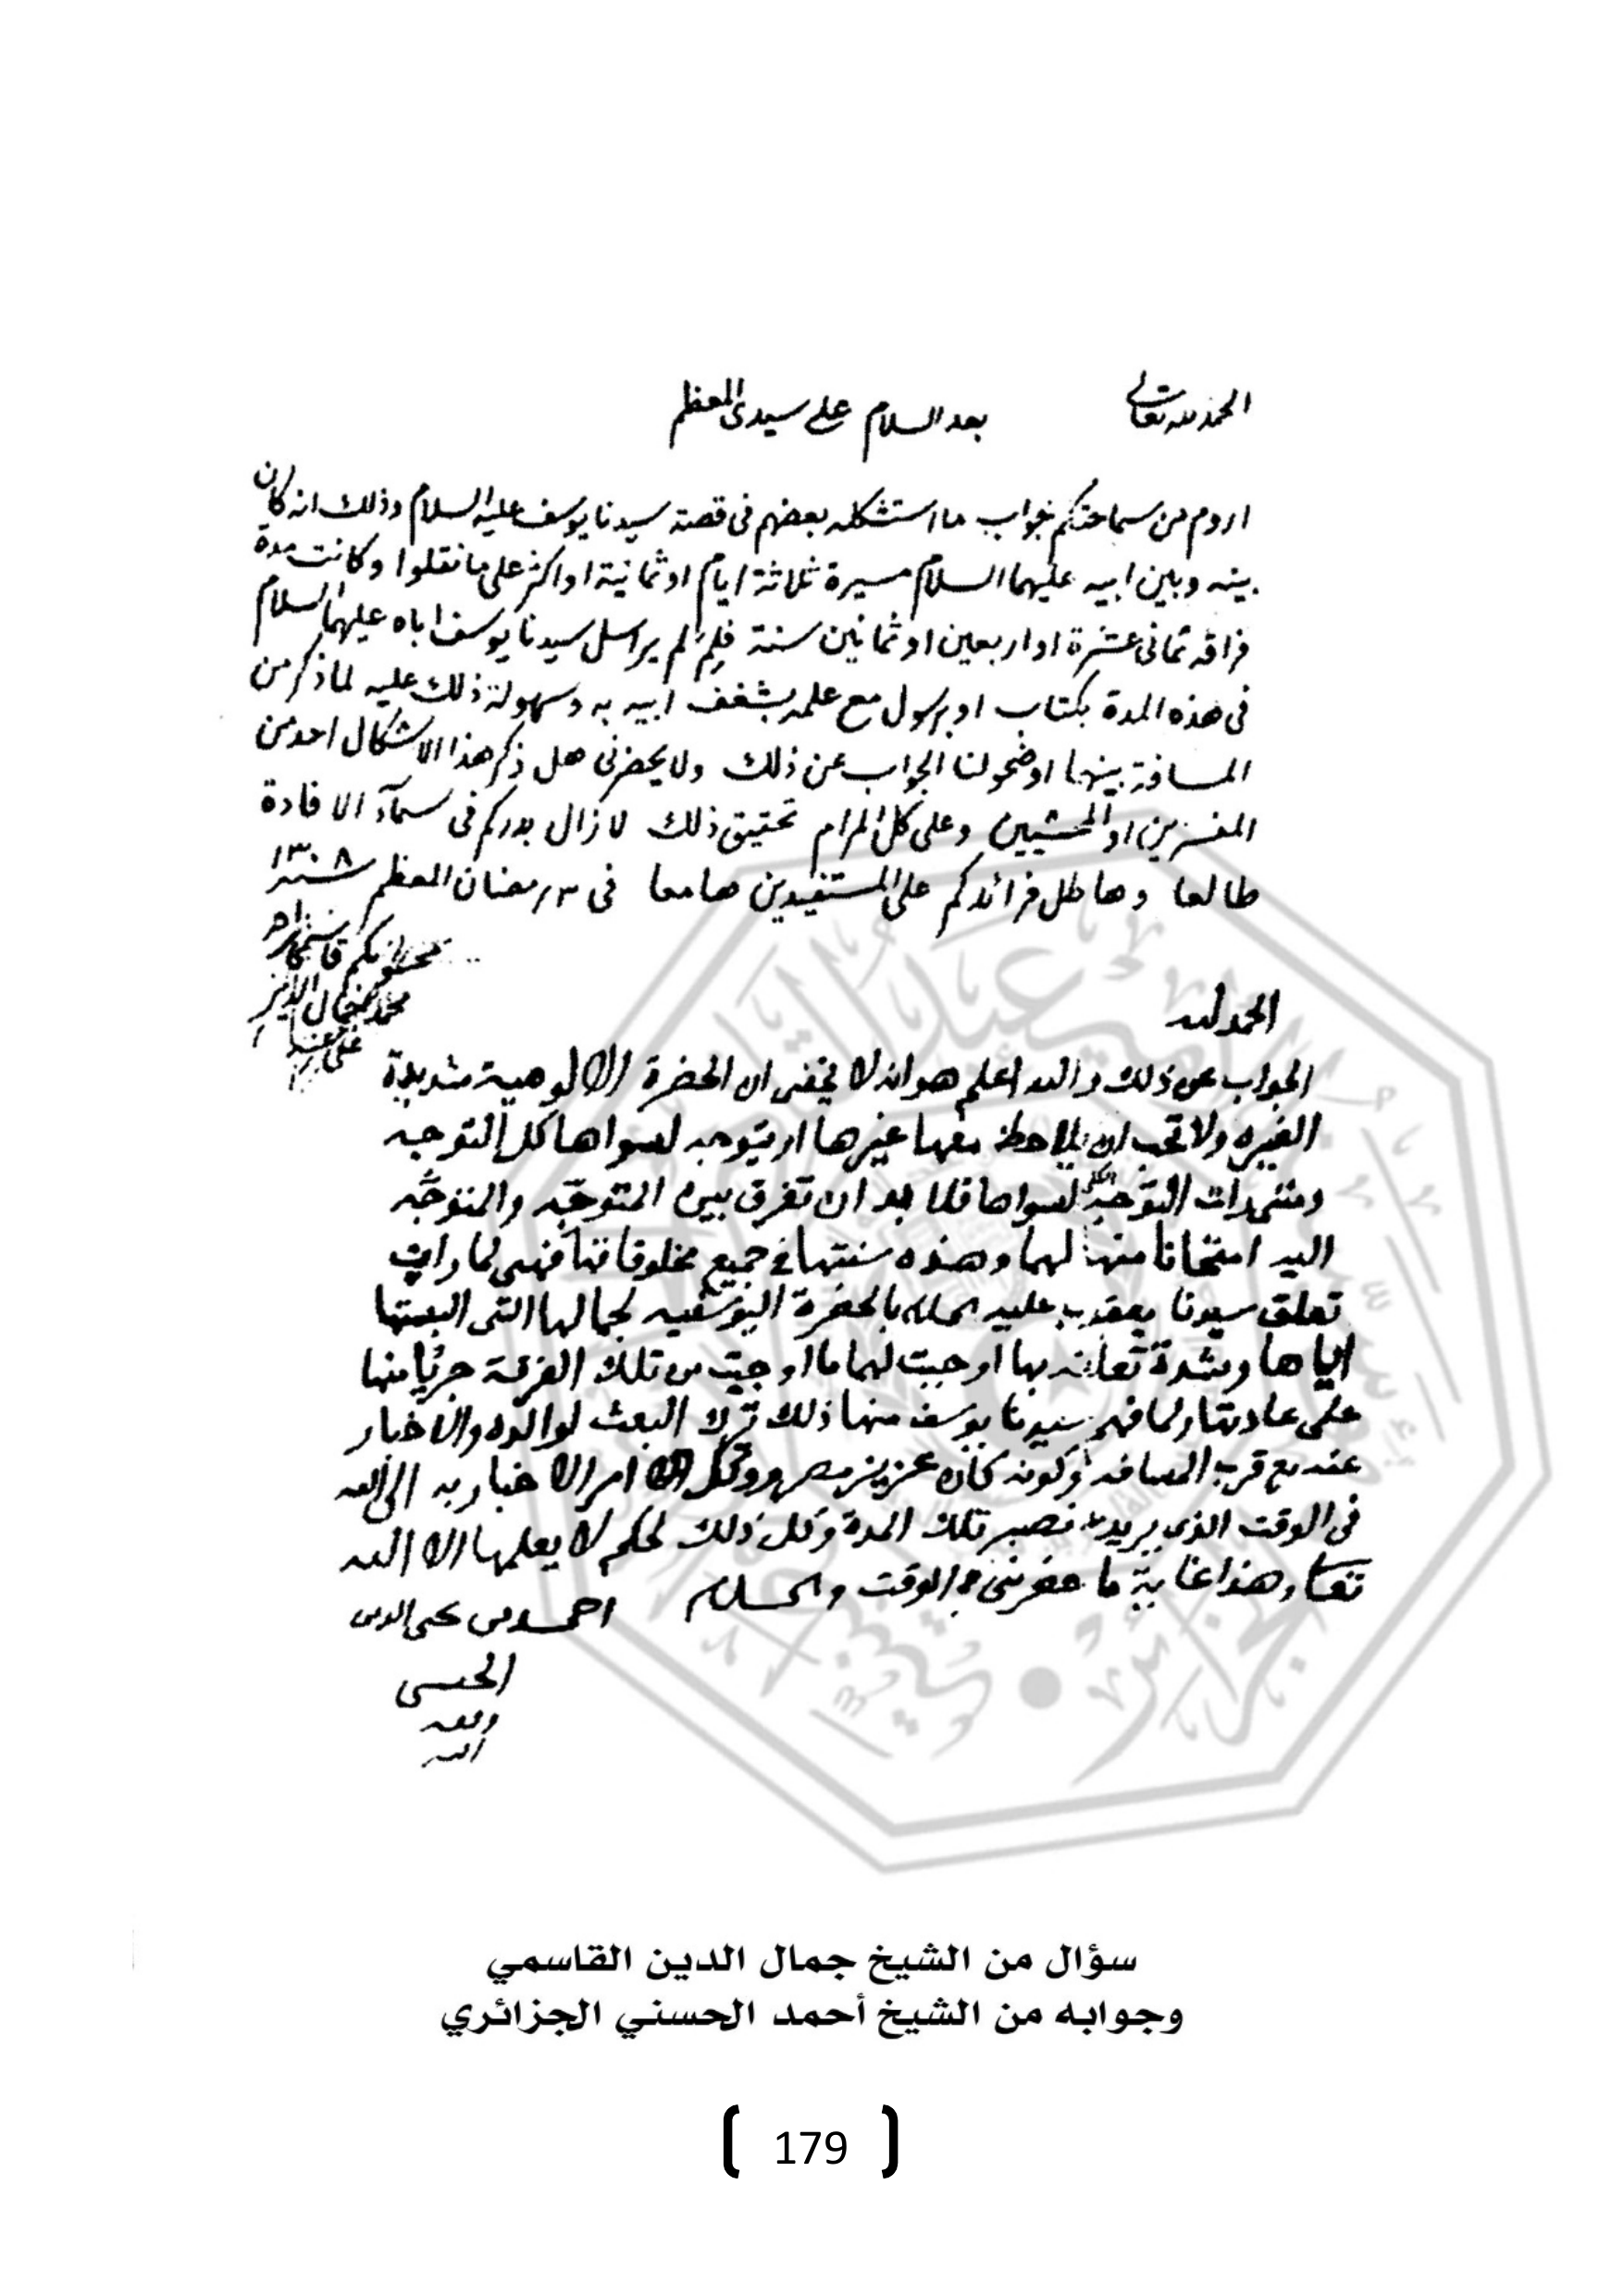 الحمد لله تعالى
بعد السلام على سيدى المعظم
اروم من سماحتكم جواب ما استشكله بعضهم فى قصة سيدنا يوسف عليه السلام وذلك انه كان
بينه وبين ابيه عليهما السلام مسيرة ثلاثة ايام او ثمانية او اكثر على ما نقلوا وكانت مدة
فراقه ثمانى عشرة او اربعين او ثمانين سنة فلم لم يراسل سيدنا يوسف اباه عليهما السلام
فى هذه المدة بكتاب او برسول مع علمه بشغف ابيه به وسهولة ذلك عليه لما ذكر من
المسافة بينهما اوضحوا لنا الجواب عن ذلك ولا يحضرنى هل ذكر هذا الاشكال احد من
المفسرين او المحشيين وعلى كل المرام تحقيق ذلك لا زال بدركم فى سمآء الافادة
طالعا وهاطل فرائدكم على المستفيدين هامعا فى ٣ رمضان المعظم سنة ١٣٠٨
محمد جمال الدين
الحمد لله
الجواب عن ذلك والله اعلم هو انه لا يخفى ان الحضرة الالوهية شديدة
الغيره ولا تحب ان يلاحظ معها غيرها او يتوجه لسواها كل التوجه
ومتى رات التوجه لسواها فلا بد ان تفرق بين المتوجّه والمتوجَّه
اليه امتحانا منها لهما وهذه سنتها فى جميع مخلوقاتها فهى لما رات
تعلق سيدنا يعقوب عليه السلام بالحضرة اليوسفيه لجمالها التى البستها
اياها وشدة تعلقه بها اوجبت لهما ما اوجبت من تلك الفرقة جريا منها
على عادتها ولما فهم سيدنا يوسف منها ذلك ترك البعث لوالده والاخبار
عنه مع قرب المسافه وكونه كان عزيز مصر ووكل امر الاخبار به الى الله
فى الوقت الذى يريد فصبر تلك المدة وكل ذلك لحكم لا يعلمها الا الله
تعالى وهذا غاية ما حضرنى فى الوقت والسلام
احمد بن محيى الدين
الحسنى
وفقه
الله
سؤال من الشيخ جمال الدين القاسمي
وجوابه من الشيخ أحمد الحسني الجزائري
179